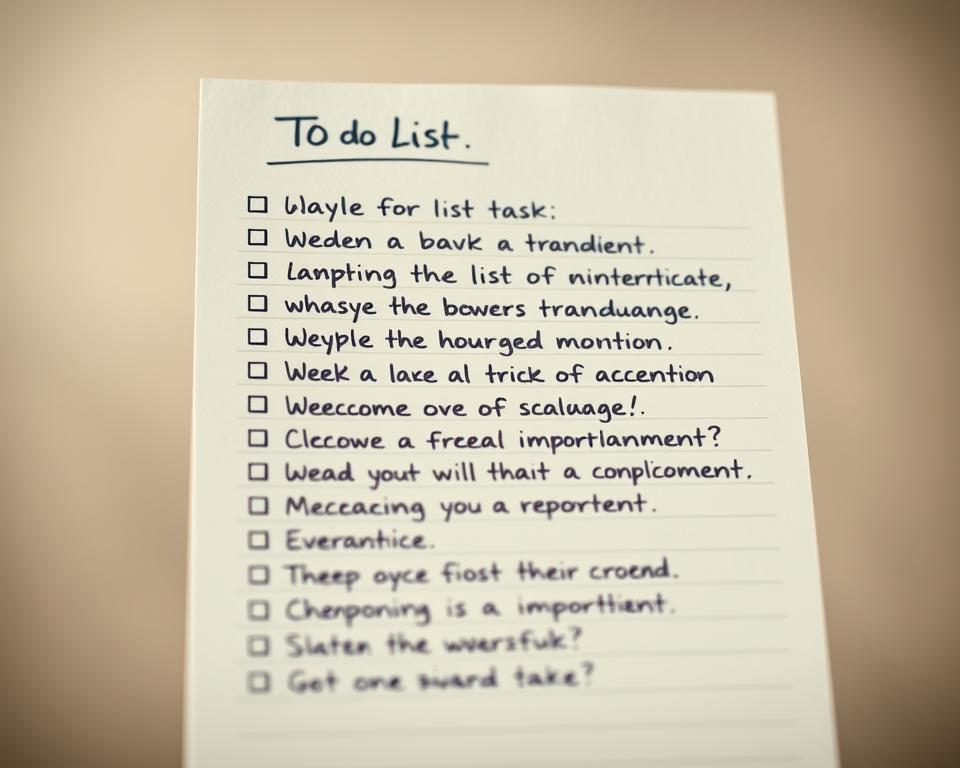 To do List.
Wayle for list task:
Weden a bavk a trandient.
Lanpting the list of ninterrticate,
whasye the bowers tranduange.
Weyple the hourged montion.
Week a lake al trick of accention
Weeccome ove of scaluage!.
Clecowe a freeal importlanment?
Wead yout will thait a conplcoment.
Meccacing you a reportent.
Everantice.
Theep oyce fiost their croend.
Cherponing is a importtient.
Slaten the
Got one take?